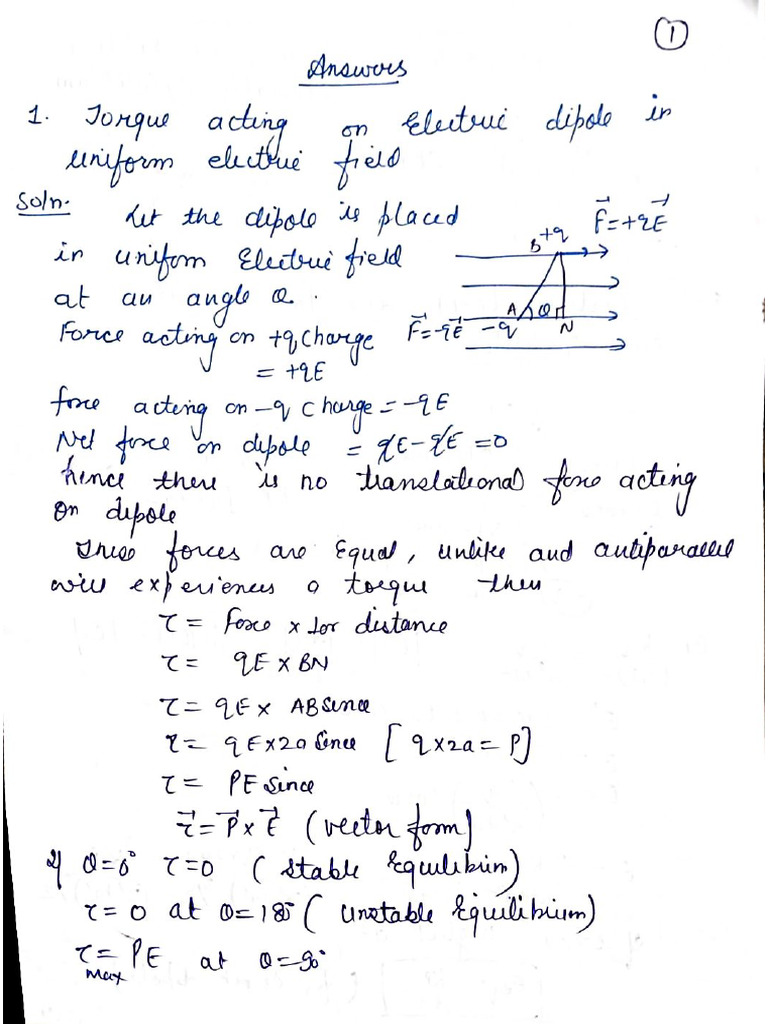 ①
Answers
1. Torque acting on Electric dipole in
uniform electric field
Soln. Let the dipole is placed
in uniform Electric field
at an angle θ.
F⃗=+qE⃗
B +q
A θ N
F⃗=-qE⃗ -q
Force acting on +q Charge
= +qE
force acting on -q Charge = -qE
Net force on dipole = qE - qE = 0
hence there is no translational force acting
on dipole
These forces are Equal, unlike and antiparallel
will experiences a torque then
τ = Force x ⊥or distance
τ = qE x BN
τ = qE x AB sinθ
τ = qE x 2a sinθ [ q x 2a = P]
τ = PE sinθ
τ⃗ = P⃗ x E⃗ (vector form)
If θ=0° τ=0 ( stable Equilibrium)
τ = 0 at θ=180° ( Unstable Equilibrium)
τmax = PE at θ=90°